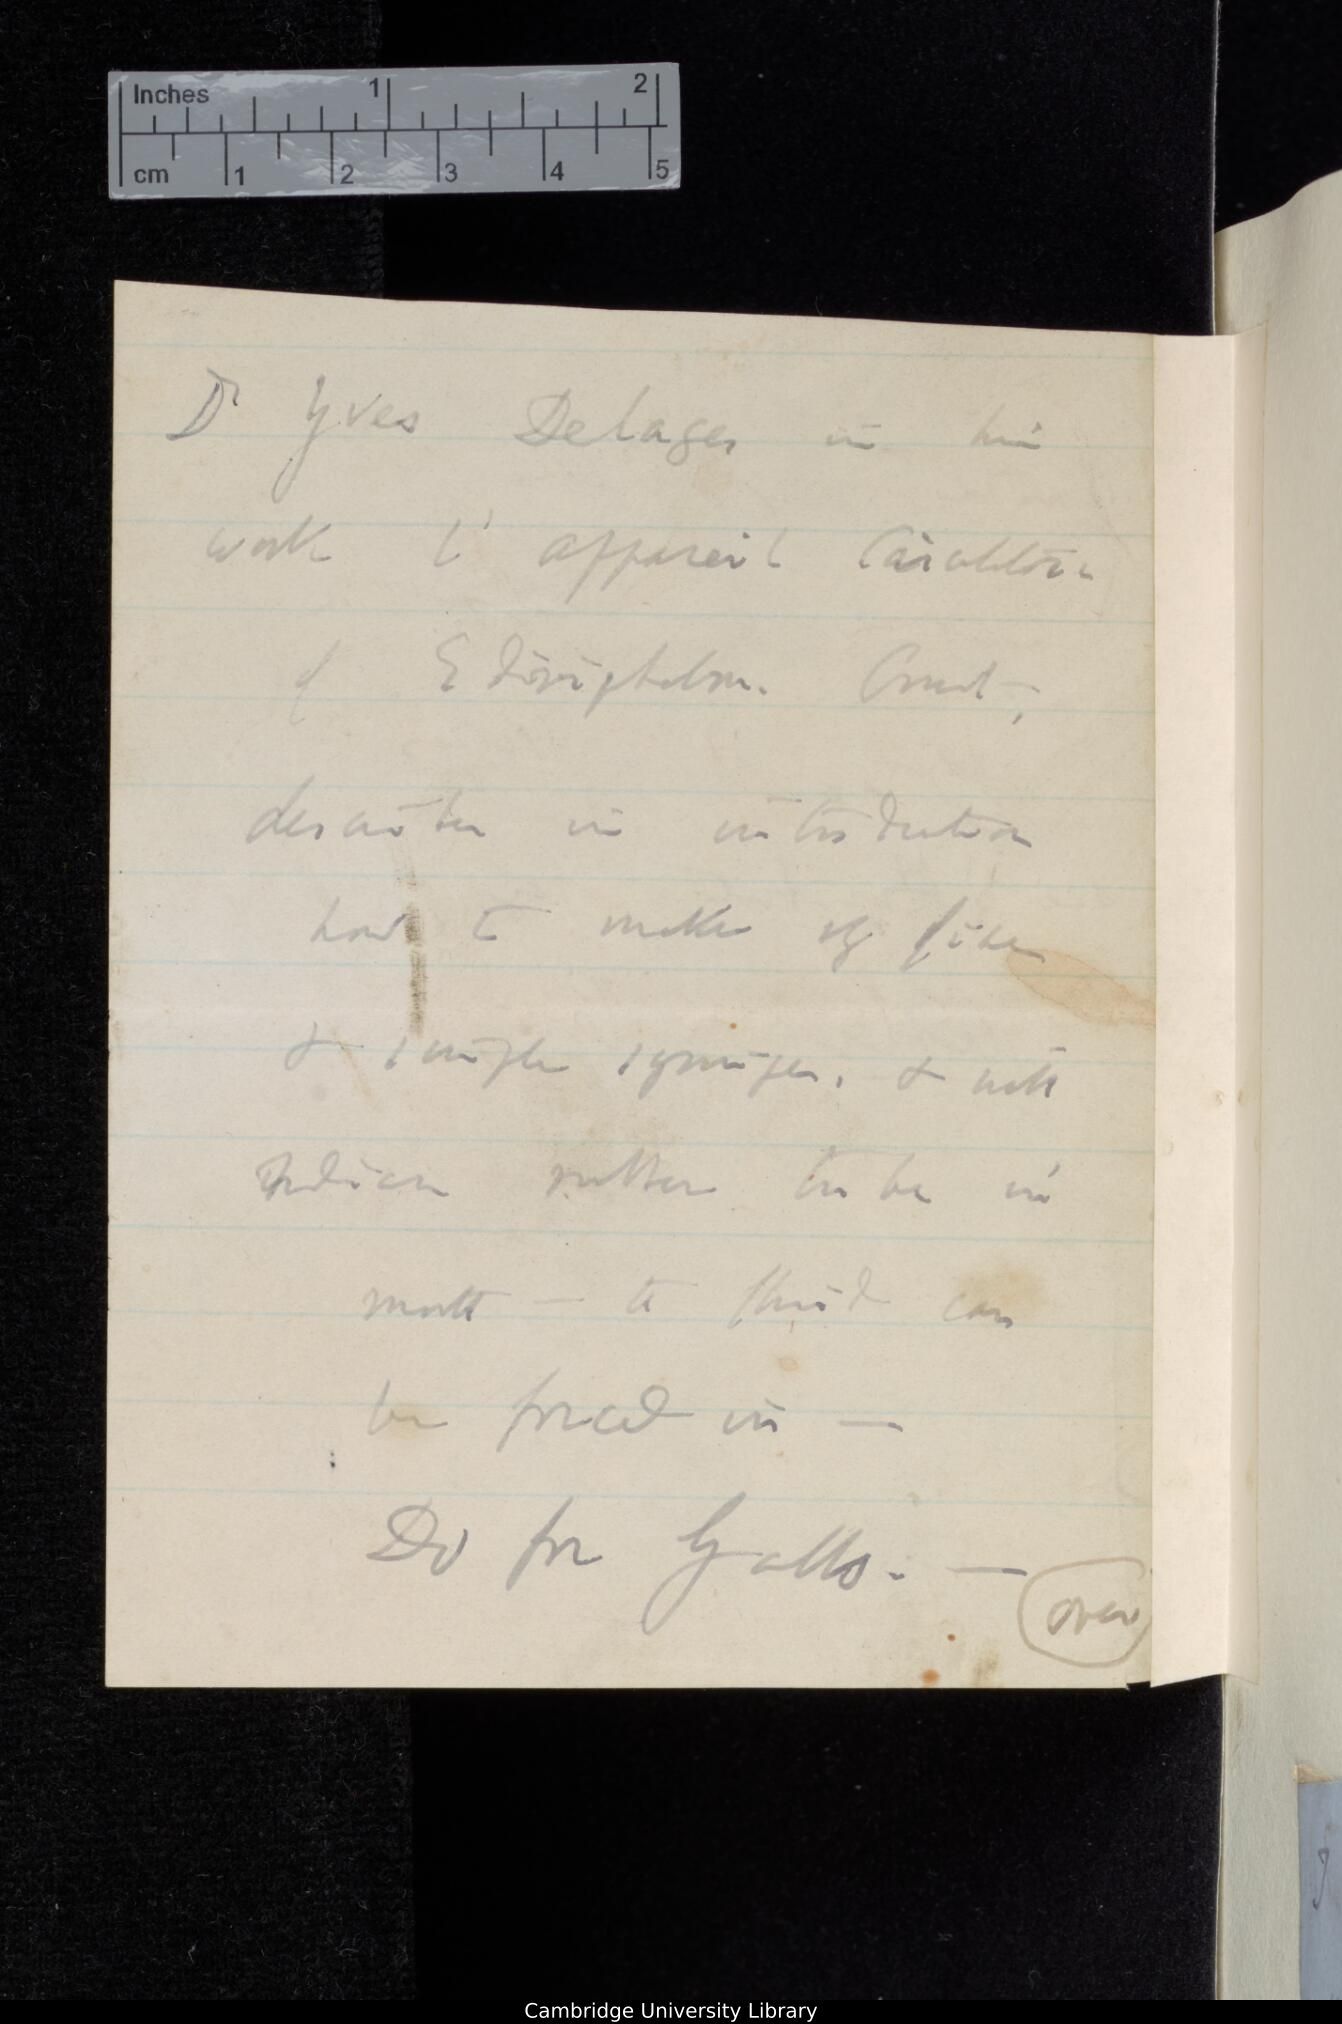 Inches 1 2
cm 1 2 3 4 5
Dr Yves Delages in his
work l'appareil Circulatoire
of Edriophthalm. Crust,
describes in introduction
how to make of fine
& simple syringes, & with
Indian rubber tube in
mouth — the fluid can
be forced in —
Do for Galls. —
over
Cambridge University Library